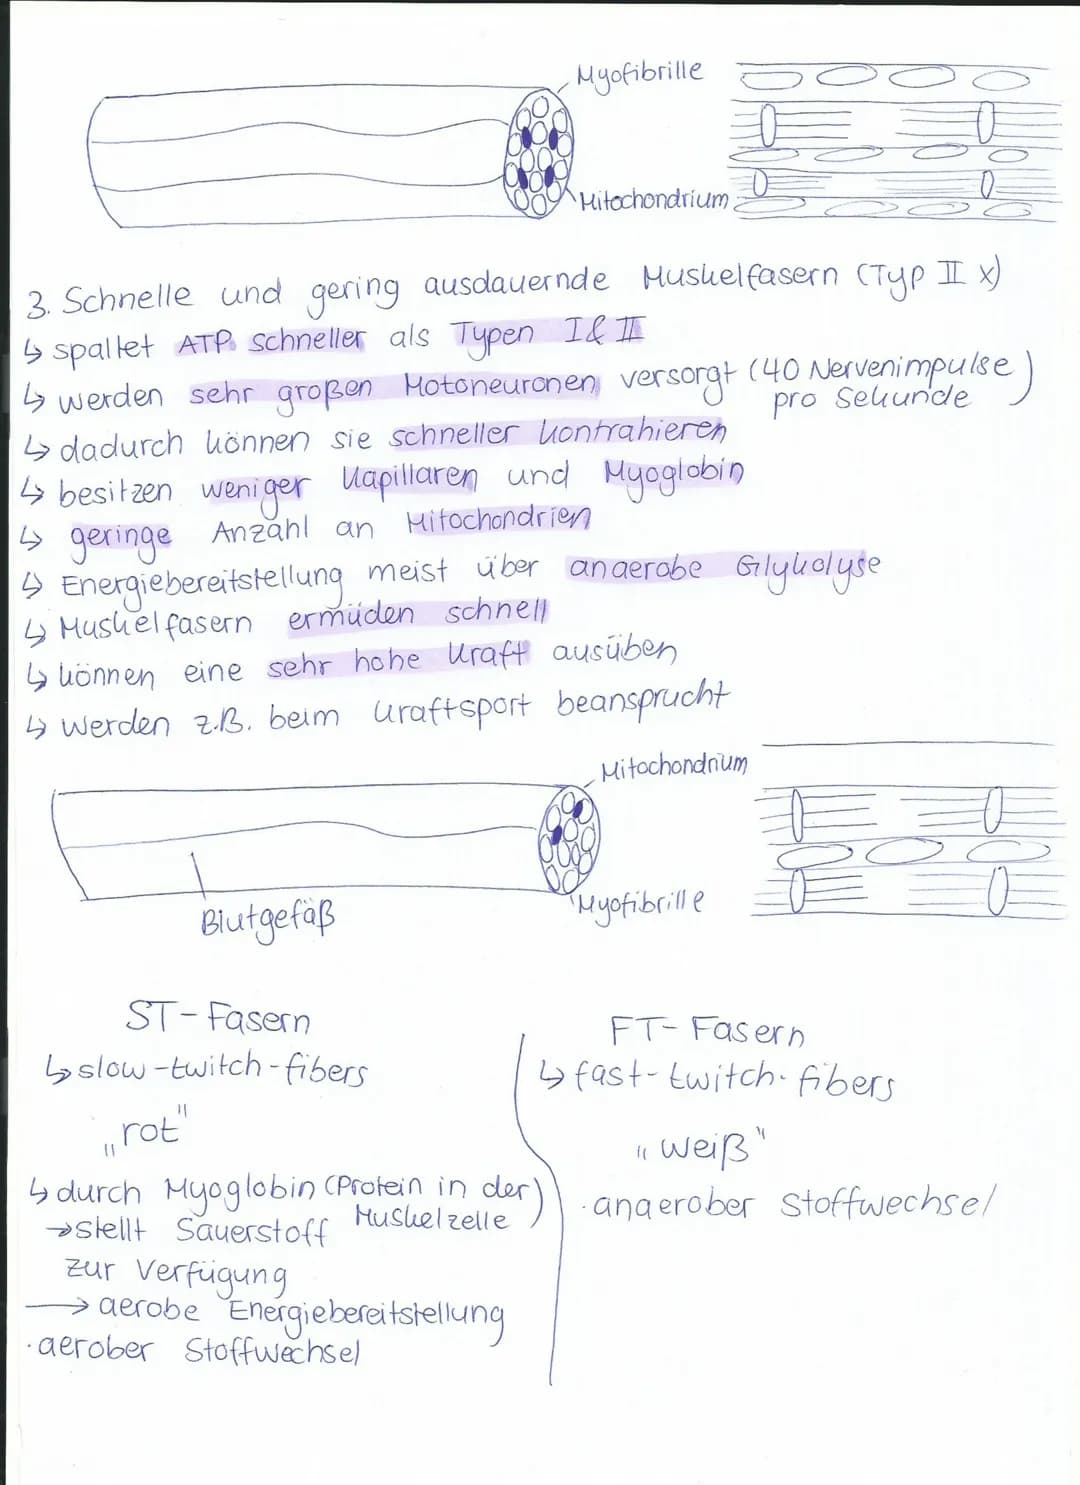 Myofibrille
Mitochondrium
3. Schnelle und gering ausdauernde Muskelfasern (Typ II x)
↳ spaltet ATP schneller als Typen I & II
↳ werden sehr großen Motoneuronen versorgt (40 Nervenimpulse pro Sekunde)
↳ dadurch können sie schneller kontrahieren
↳ besitzen weniger Kapillaren und Myoglobin
↳ geringe Anzahl an Mitochondrien
↳ Energiebereitstellung meist über anaerobe Glykolyse
↳ Muskelfasern ermüden schnell
↳ können eine sehr hohe Kraft ausüben
↳ werden z.B. beim Kraftsport beansprucht
Mitochondrium
Myofibrille
Blutgefäß
ST-Fasern
↳ slow-twitch-fibers
„rot"
↳ durch Myoglobin (Protein in der Muskelzelle)
→ stellt Sauerstoff
zur Verfügung
→ aerobe Energiebereitstellung
· aerober Stoffwechsel
FT-Fasern
↳ fast-twitch-fibers
„weiß"
· anaerober Stoffwechsel